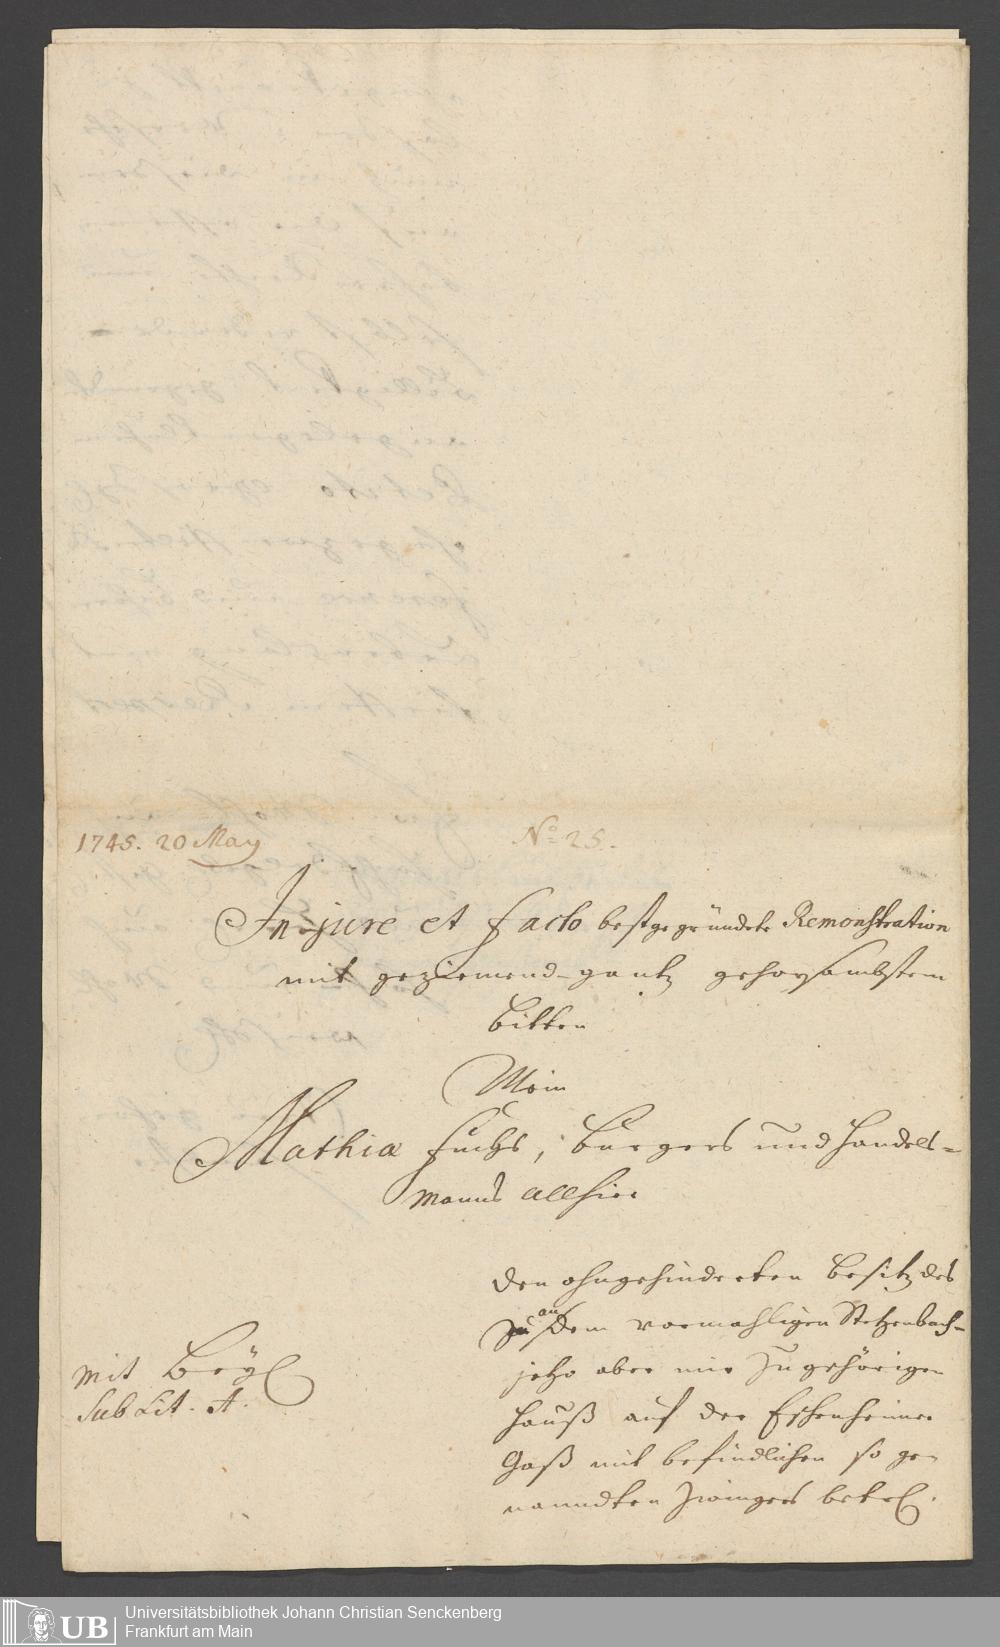 1745. 20 May
No 25.
In jure et facto bestgegründete Remonstration
mit geziemend-gantz gehorsambstem
Bitten
Mein
Mathiæ Fuchs, Burgers und Handels-
manns allhier
den ohngehinderten Besitz des
an dem vormahligen Stetzenbach-
jetzo aber mir zugehörigen
Hauß auf der Eschenheimer
Gaß mit befindlichen so ge-
nanndten Zwingers betr.
mit Beyl
Sub Lit. A.
UB
Universitätsbibliothek Johann Christian Senckenberg
Frankfurt am Main